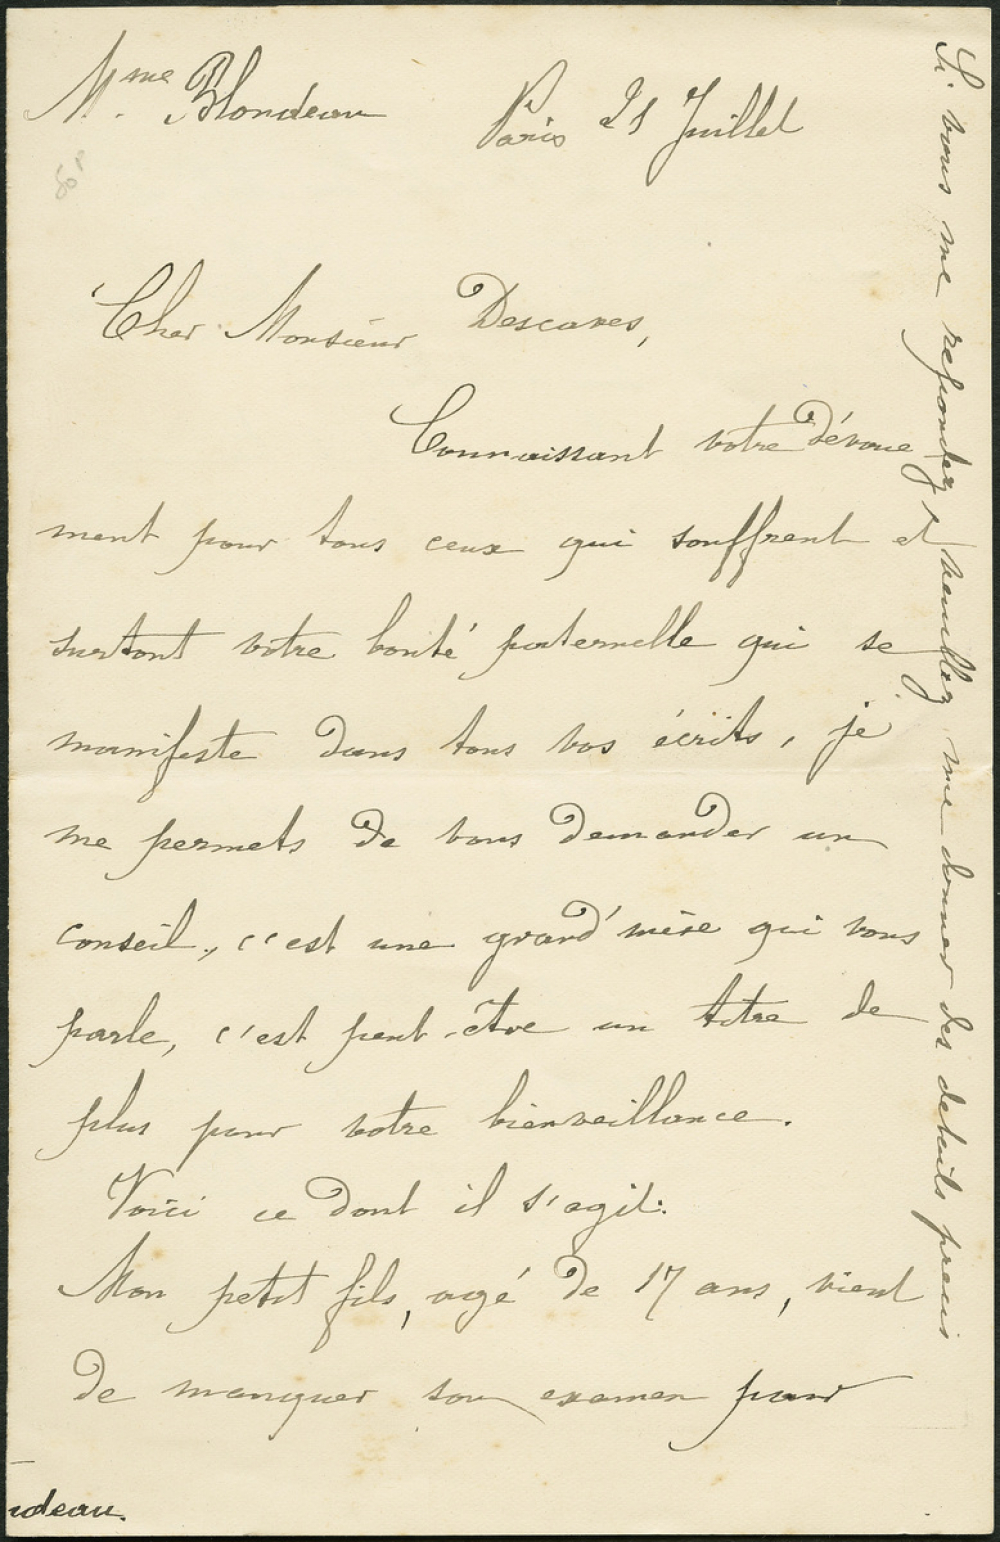 Mme Blondeau
Paris 21 Juillet
Cher Monsieur Descaves,
Connaissant votre dévoue
ment pour tous ceux qui souffrent et
surtout votre bonté paternelle qui se
manifeste dans tous vos écrits, je
me permets de vous demander un
conseil, c'est une grand'mère qui vous
parle, c'est peut-être un titre de
plus pour votre bienveillance.
Voici ce dont il s'agit:
Mon petit fils, agé de 17 ans, vient
de manquer son examen pour
Si vous me repondez, veuillez me donner des details precis
ndeau.